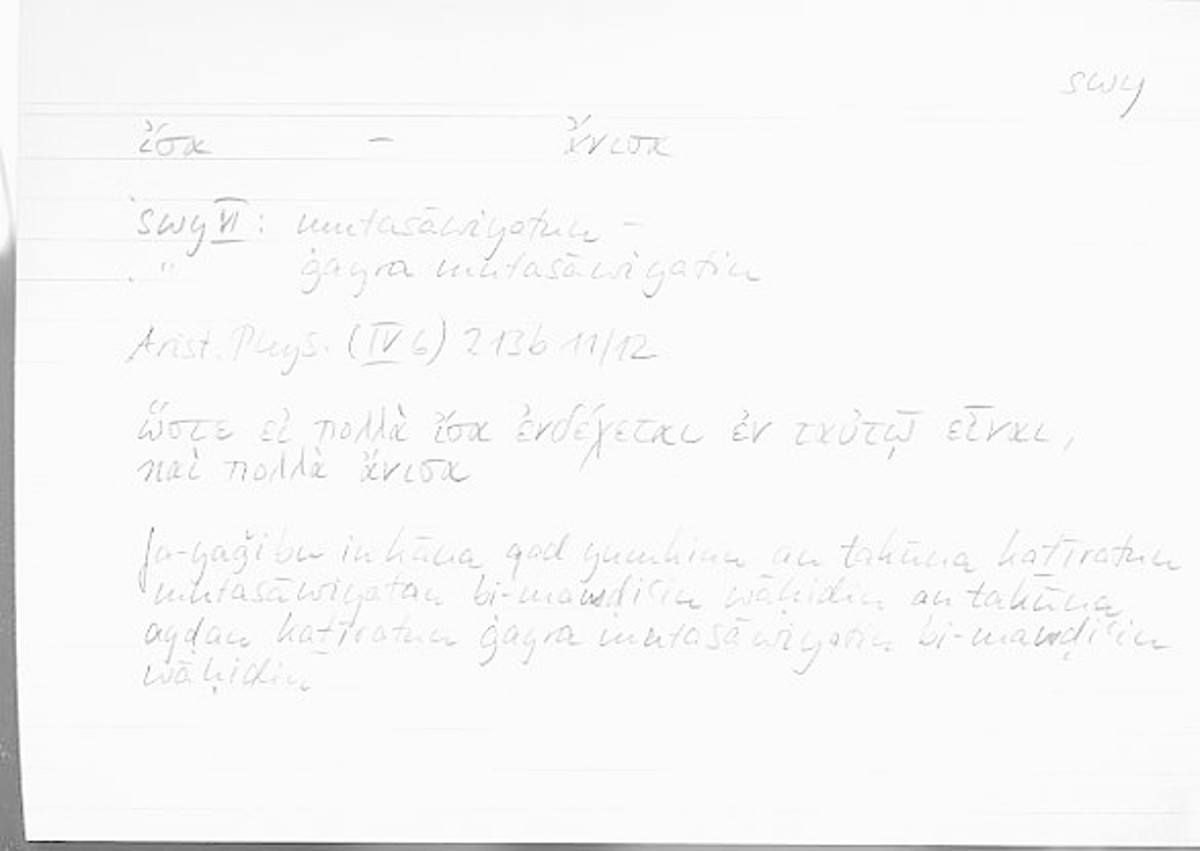 swy
ἴσα – ἄνισα
swy VI : mutasāwiyatun –
" ġayra mutasāwiyatin
Arist. Phys. (IV 6) 213b 11/12
ὥστε εἰ πολλὰ ἴσα ἐνδέχεται ἐν ταὐτῷ εἶναι,
καὶ πολλὰ ἄνισα
fa-yaǧibu in kāna qad yumkinu an takūna kaṯīratun
mutasāwiyatan bi-mawḍiʿin wāḥidin an takūna
ayḍan kaṯīratun ġayra mutasāwiyatin bi-mawḍiʿin
wāḥidin